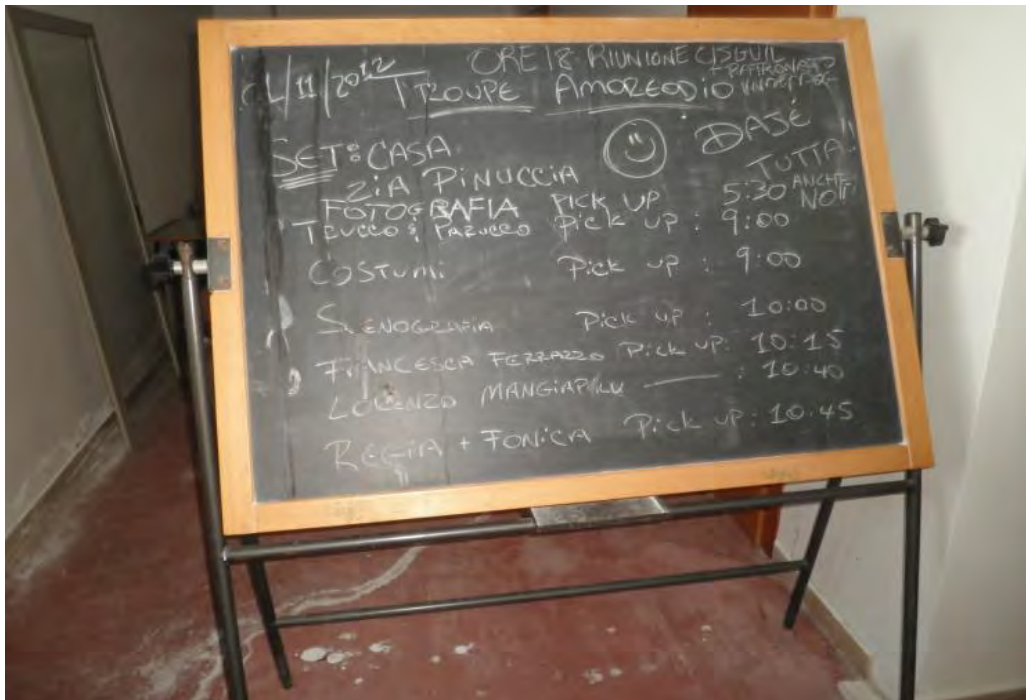 /11/2012 ORE 18 RIUNIONE CISGUIL
TROUPE AMOREODIO
SET: CASA
ZIA PINUCCIA
DAJÉ
TUTTA!!
ANCHE
NOI
FOTOGRAFIA PICK UP 5:30
TRUCCO & PARUCCO PICK UP : 9:00
COSTUMI PICK UP : 9:00
SCENOGRAFIA PICK UP : 10:00
FRANCESCA FERRAZZO PICK UP: 10:15
LORENZO : 10:40
REGIA + FONICA PICK UP: 10:45